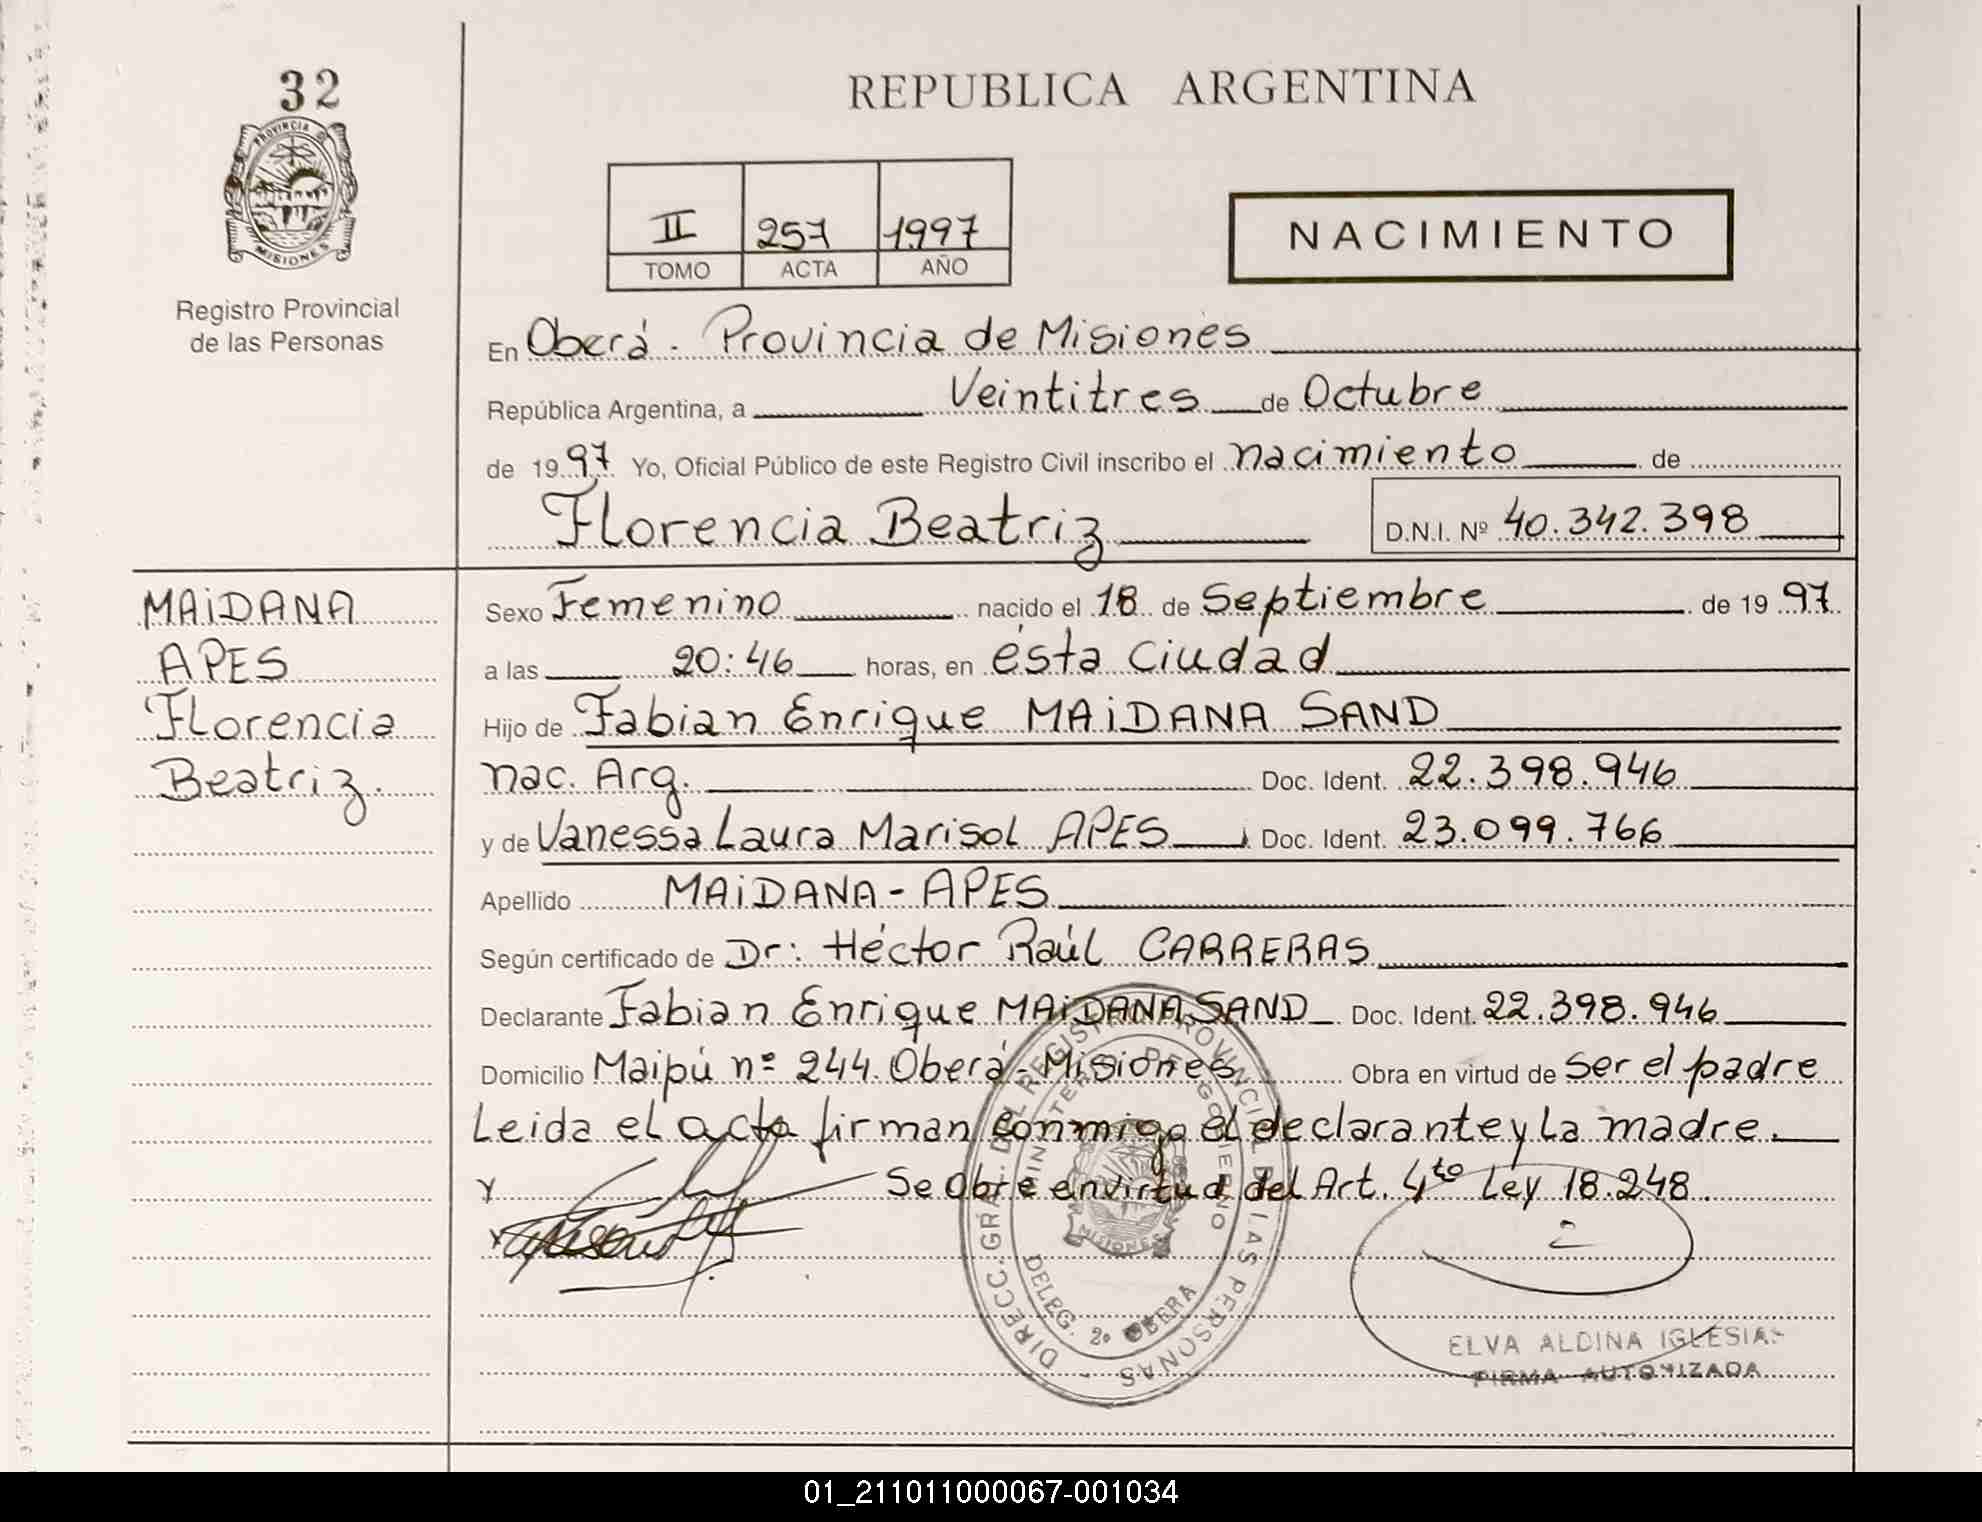 32
PROVINCIA D
MISIONES
Registro Provincial
de las Personas
REPUBLICA ARGENTINA
II 257 1997
TOMO ACTA AÑO
NACIMIENTO
En Oberá. Provincia de Misiones
República Argentina, a Veintitres de Octubre
de 19 97 Yo, Oficial Público de este Registro Civil inscribo el nacimiento de
Florencia Beatriz D.N.I. Nº 40.342.398
MAiDANA
APES
Florencia
Beatriz.
Sexo Femenino nacido el 18 de Septiembre de 19 97
a las 20:46 horas, en ésta Ciudad
Hijo de Fabian Enrique MAiDANA SAND
nac. Arg. Doc. Ident. 22.398.946
y de Vanessa Laura Marisol APES Doc. Ident. 23.099.766
Apellido MAiDANA - APES
Según certificado de Dr: Héctor Raúl CARRERAS
Declarante Fabian Enrique MAiDANA SAND Doc. Ident. 22.398.946
Domicilio Maipú nº 244. Oberá - Misiones Obra en virtud de ser el padre
Leida el acta firman conmigo el declarante y la madre.
Se obre en virtud del Art. 4to Ley 18.248.
DIRECC. GRAL. DEL REGISTRO PROVINCIAL DE LAS PERSONAS
MINISTERIO DE GOBIERNO
MISIONES
DELEG. 2º OBERA
ELVA ALDINA IGLESIAS
FIRMA AUTORIZADA
01_211011000067-001034